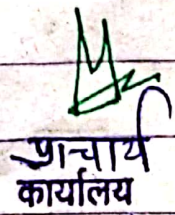 प्राचार्य
कार्यालय